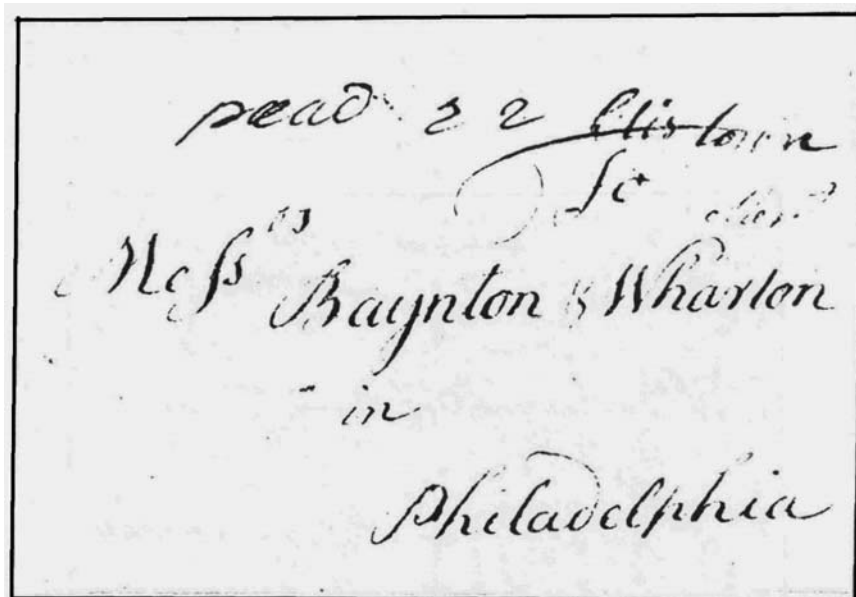 pead 2 2
Mess.rs Baynton & Wharton
in
Philadelphia